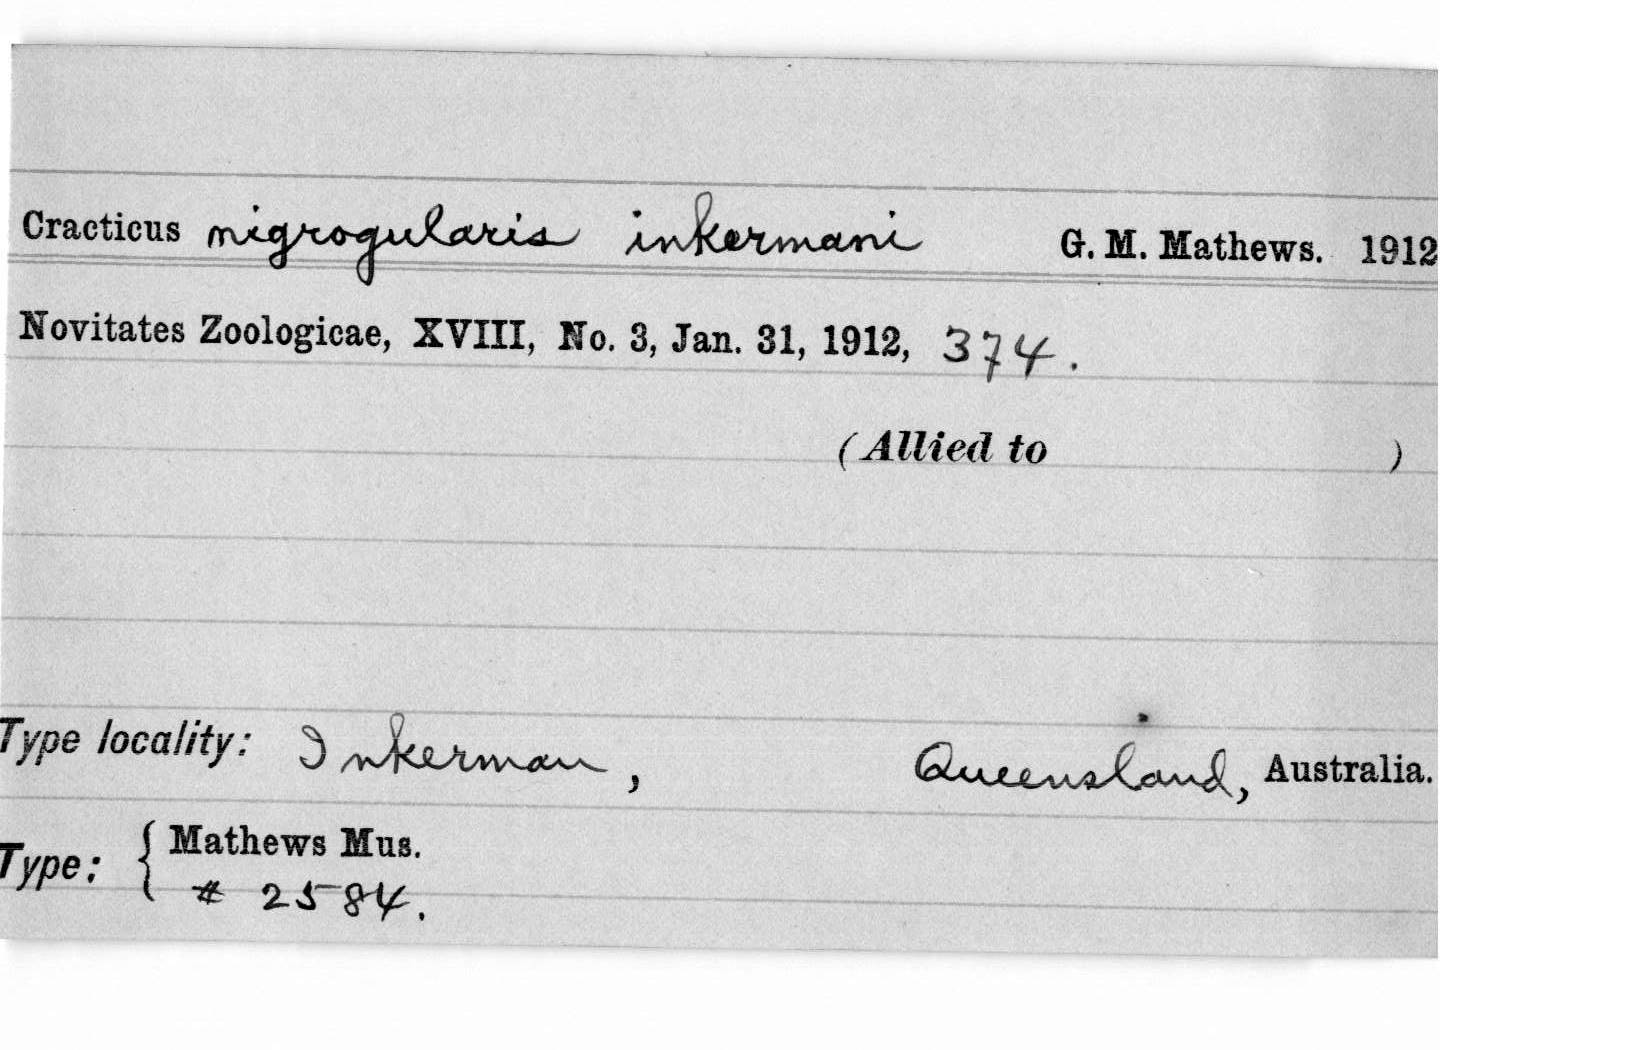 Cracticus nigrogularis inkermani G. M. Mathews. 1912
Novitates Zoologicae, XVIII, No. 3, Jan. 31, 1912, 374.
(Allied to )
Type locality: Inkerman, Queensland, Australia.
Type: { Mathews Mus.
# 2584.